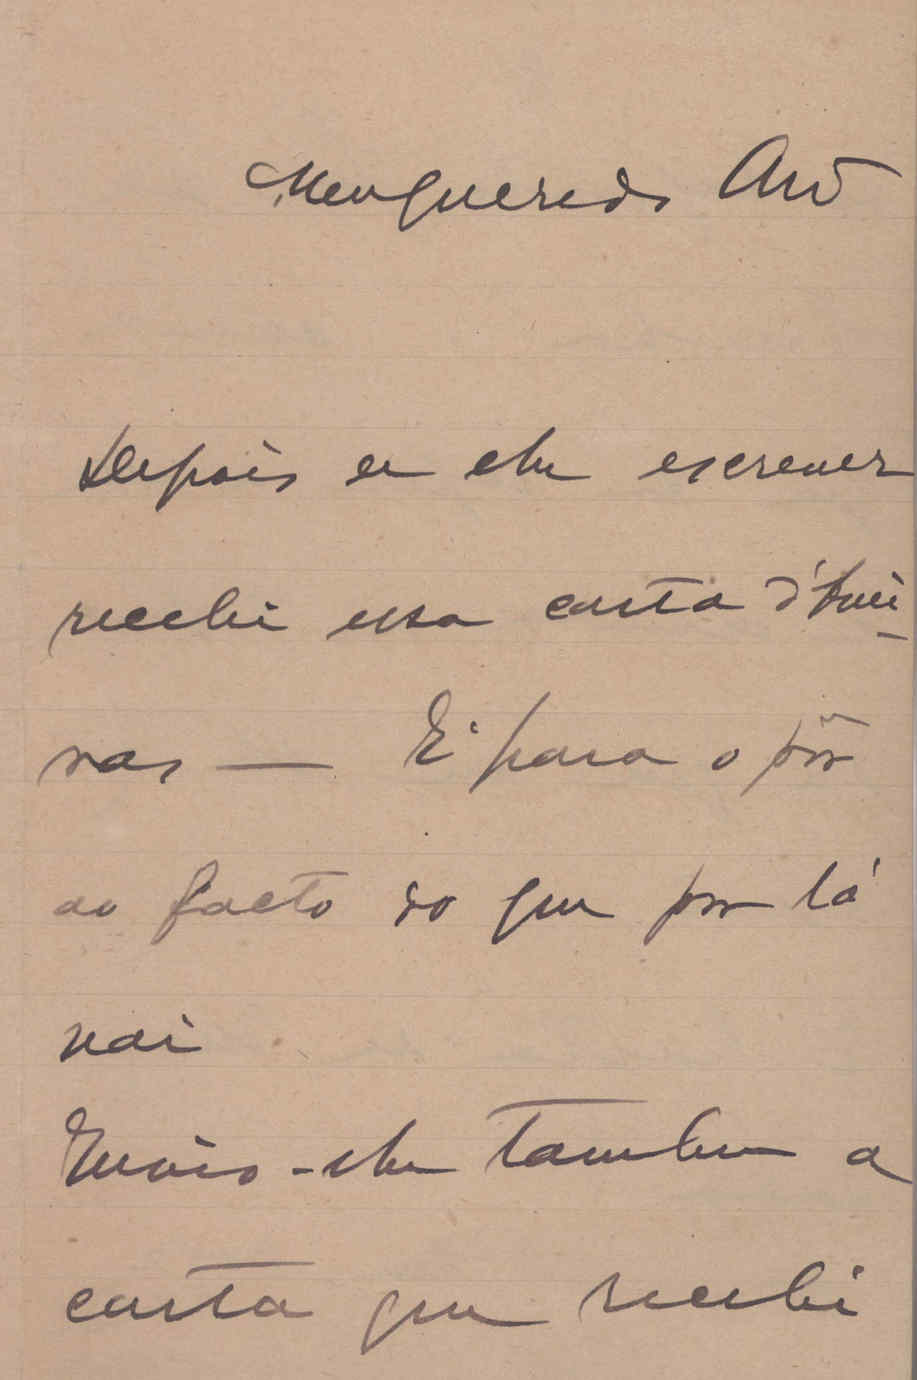 Meu querido Avô
Depois de lhe escrever
recebi essa carta d'
vas — E' para o pôr
ao facto do que por lá
vai
Envio-lhe tambem a
carta que recebi